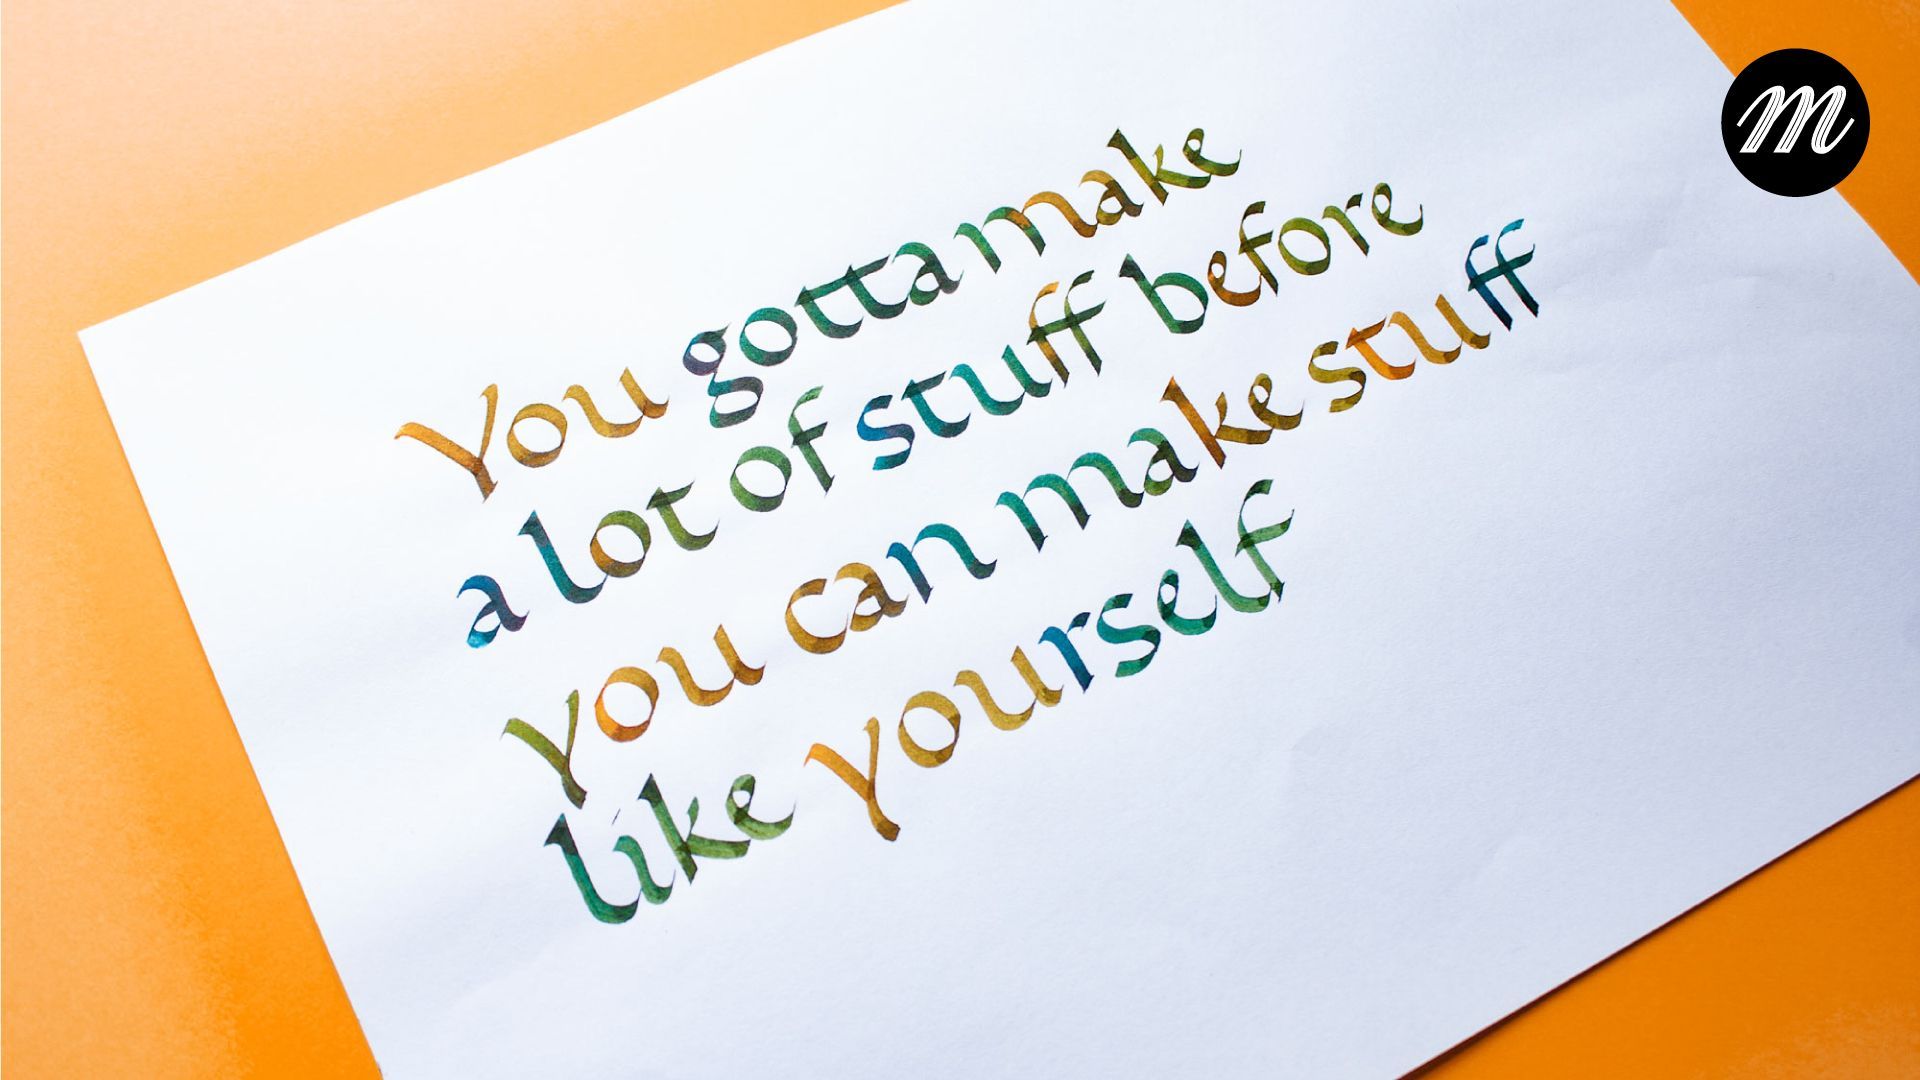 You gotta make
a lot of stuff before
you can make stuff
like yourself
m